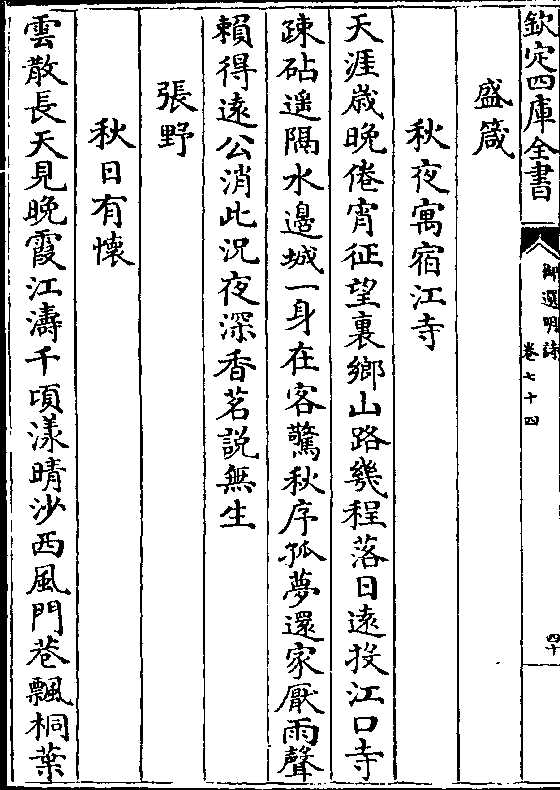 欽定四庫全書
御選明詩
卷七十四
四十
盛箴
秋夜寓宿江寺
天涯歳晚倦宵征望裏鄉山路幾程落日遠投江口寺
疎砧遥隔水邊城一身在客驚秋序孤夢還家厭雨聲
賴得遠公消此況夜深香茗說無生
張野
秋日有懷
雲散長天見晚霞江濤千頃漾晴沙西風門巷飄桐葉